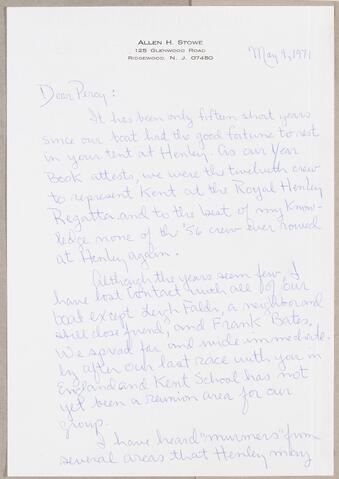 ALLEN H. STOWE
125 GLENWOOD ROAD
RIDGEWOOD, N. J. 07450
May 9, 1971
Dear Percy:
It has been only fifteen short years
since our boat had the good fortune to rest
in your tent at Henley. As our Year
Book attests, we were the twelveth crew
to represent Kent at the Royal Henley
Regatta and to the best of my know-
ledge none of the '56 crew ever rowed
at Henley again.
Although the years seem few, I
have lost contact with all of our
boat except Leigh Falds, a neighbor and
still close friend, and Frank Bates.
We spread far and wide immediate-
ly after our last race with you in
England and Kent School has not
yet been a reunion area for our
group.
I have heard "murmers" from
several areas that Henley may